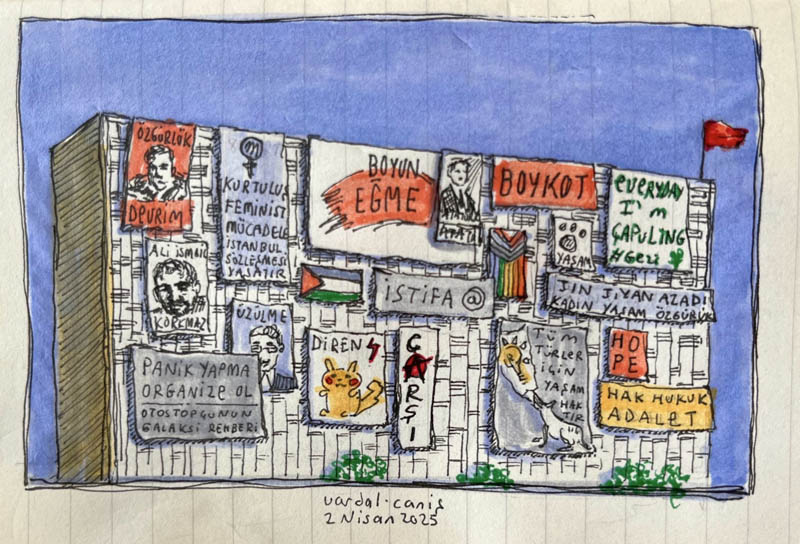 ÖZGÜRLÜK
DEVRİM
KURTULUŞ
FEMİNİST
MÜCADELE
İSTANBUL
SÖZLEŞMESİ
YAŞATIR
BOYUN
EĞME
BOYKOT
EVERYDAY
I'm
ÇAPULING
#Gezi
ALİ İSMAİL
KORKMAZ
YAŞAM
İSTİFA @
JIN JIYAN AZADİ
KADIN YAŞAM ÖZGÜRLÜK
ÜZÜLME
DİREN
ÇARŞI
TÜM
TÜRLER
İÇİN
YAŞAM
HAK
TIR
HO
PE
HAK HUKUK
ADALET
PANİK YAPMA
ORGANİZE OL
OTOSTOPÇUNUN
GALAKSİ REHBERİ
vardal.caniş
2 Nisan 2025